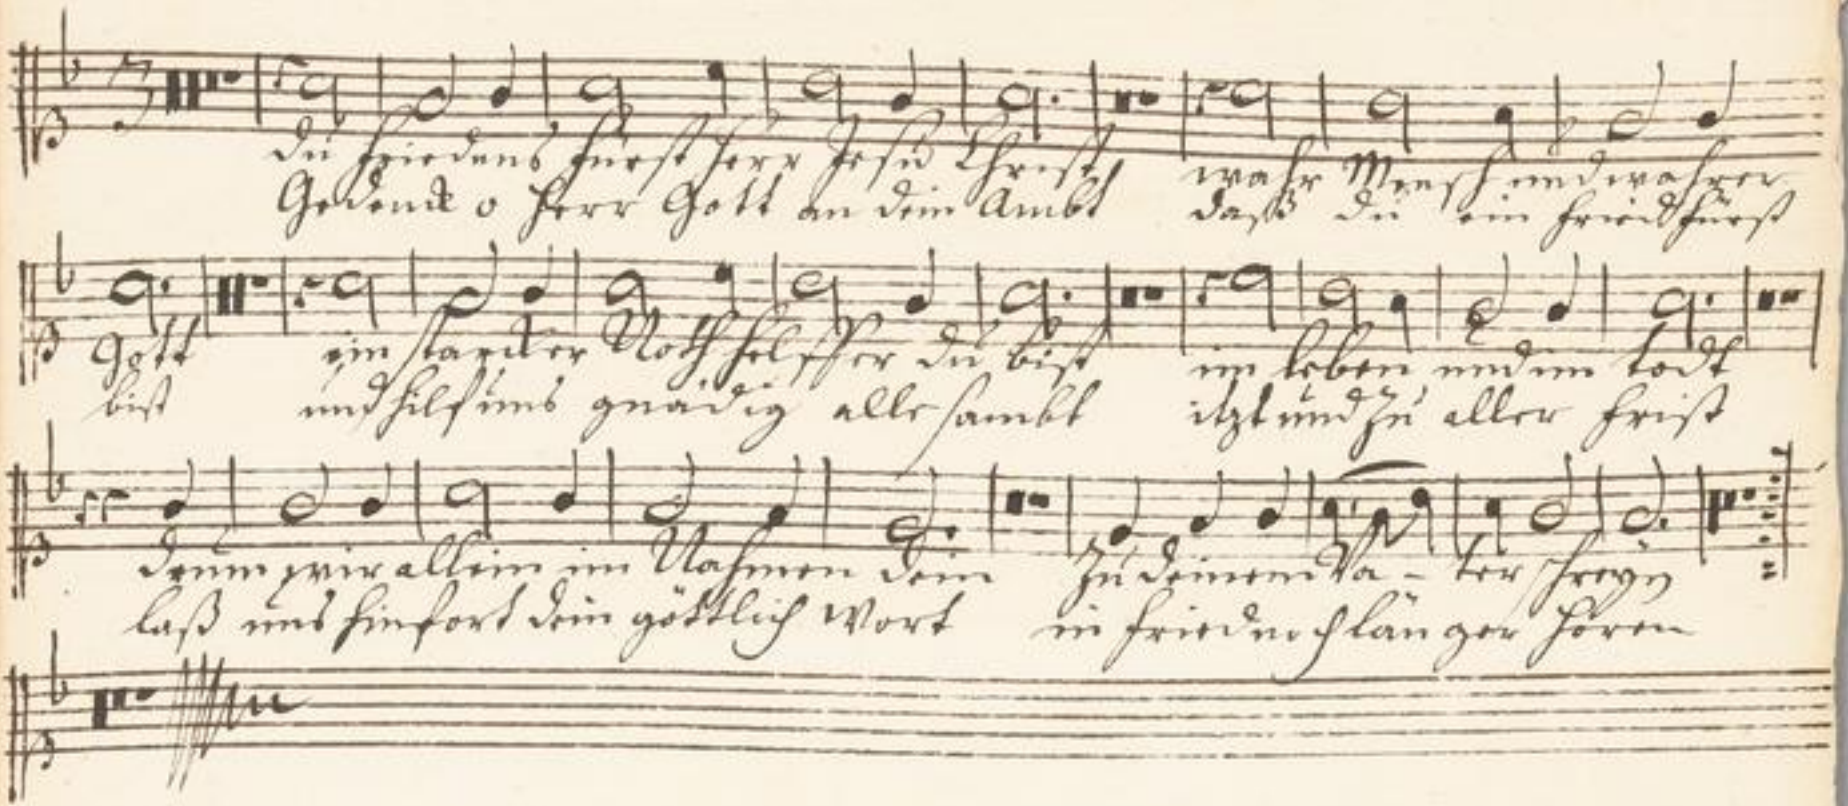 du Friedens Fürst Herr Jesu Christ, wahr Mensch und wahrer
Gedenck o Herr Gott an dein Ambt daß du ein Fried Fürst
Gott ein starcker Noth helffer du bist im leben und im todt
bist und hilf uns gnädig alle sambt itzt und zu aller Frist
drum wir allein im Nahmen dein zu deinem Va - ter schreyn
laß uns hinfort dein göttlich Wort in Fried noch länger hören